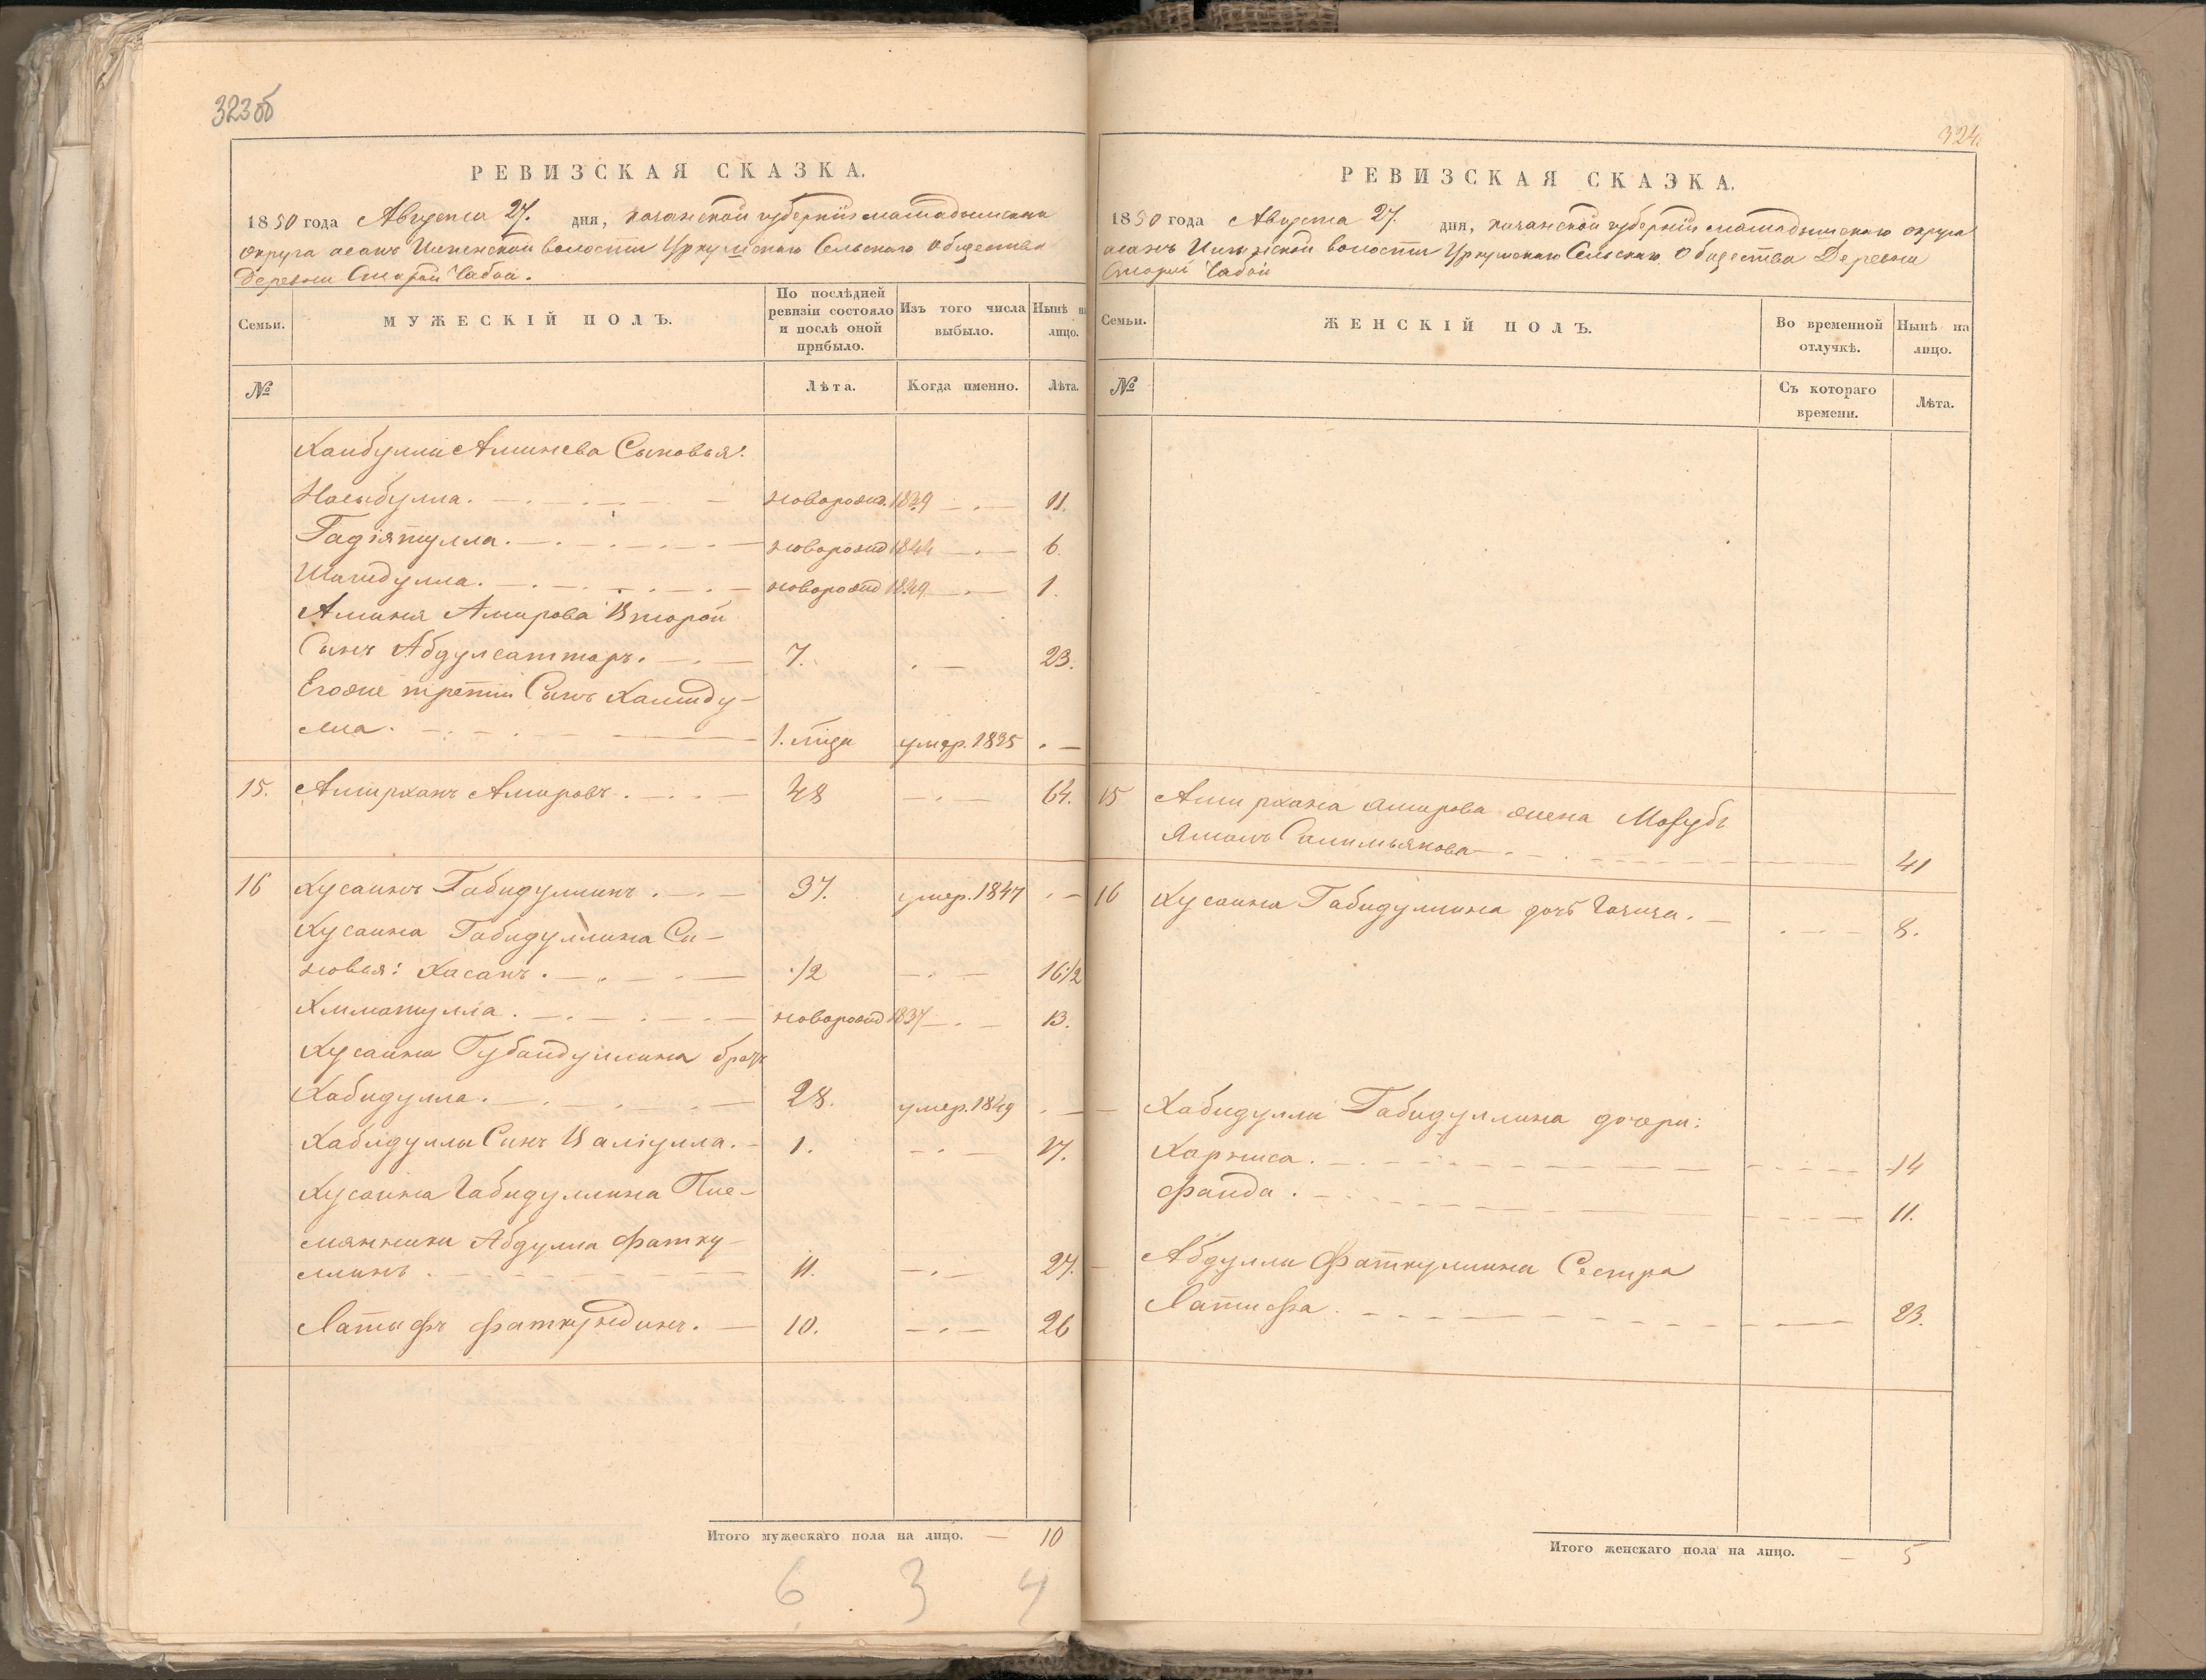 323об
РЕВИЗСКАЯ СКАЗКА.
1850 года Августа 27. дня, Казанской губернии мамадышскаго
округа Волости Уркушскаго Сельскаго Общества
Деревни Старой Чабьи.
Семьи.
МУЖЕСКІЙ ПОЛЪ.
По послѣдней ревизіи состояло и послѣ оной прибыло.
Изъ того числа выбыло.
Нынѣ на лицо.
№
Лѣта.
Когда именно.
Лѣта.
Хаибуллы Аминева Сыновья:
Насыбулла. новорожд. 1839 11.
Гадіятулла. новорожд 1844 6.
Шагидулла. новорожд 1849 1.
Аминя Амирова Второй
Сынъ Абдулсаттаръ. 7. 23.
Егоже третій Сынъ Хамиду-
лла. 1. года умер. 1835
15. Амирханъ Амировъ. 48 64.
16 Хусаинъ Габидуллинъ. 37. умер. 1847
Хусаина Габидуллина Сы-
новья: Хасанъ. 1/2 16 1/2
Хикматулла. новорожд 1837 13.
Хусаина Губайдуллина братъ
Хабидулла. 28. умер. 1849
Хабидуллы Сынъ Валіулла. 1. 17.
Хусаина Габидуллина Пле-
мянники Абдулла Фатку-
ллинъ. 11. 27.
Латыфъ Фаткулдинъ. 10. 26
Итого мужескаго пола на лицо. 10
6 3 7
324
РЕВИЗСКАЯ СКАЗКА.
1850 года Августа 27. дня, Казанской губерніи мамадышскаго округа
Волости Уркушскаго Сельскаго Общества Деревни
Старой Чабьи
Семьи.
ЖЕНСКІЙ ПОЛЪ.
Во временной отлучкѣ.
Нынѣ на лицо.
№
Съ котораго времени.
Лѣта.
15 Амирхана Амирова жена Магубъ
Ямалъ Салимьянова 41
16 Хусаина Габидуллина дочь 8.
Хабидуллы Габидуллина дочери:
14
Фаида. 11.
Абдуллы Фаткуллина Сестра
Латифа. 23.
Итого женскаго пола на лицо. 5